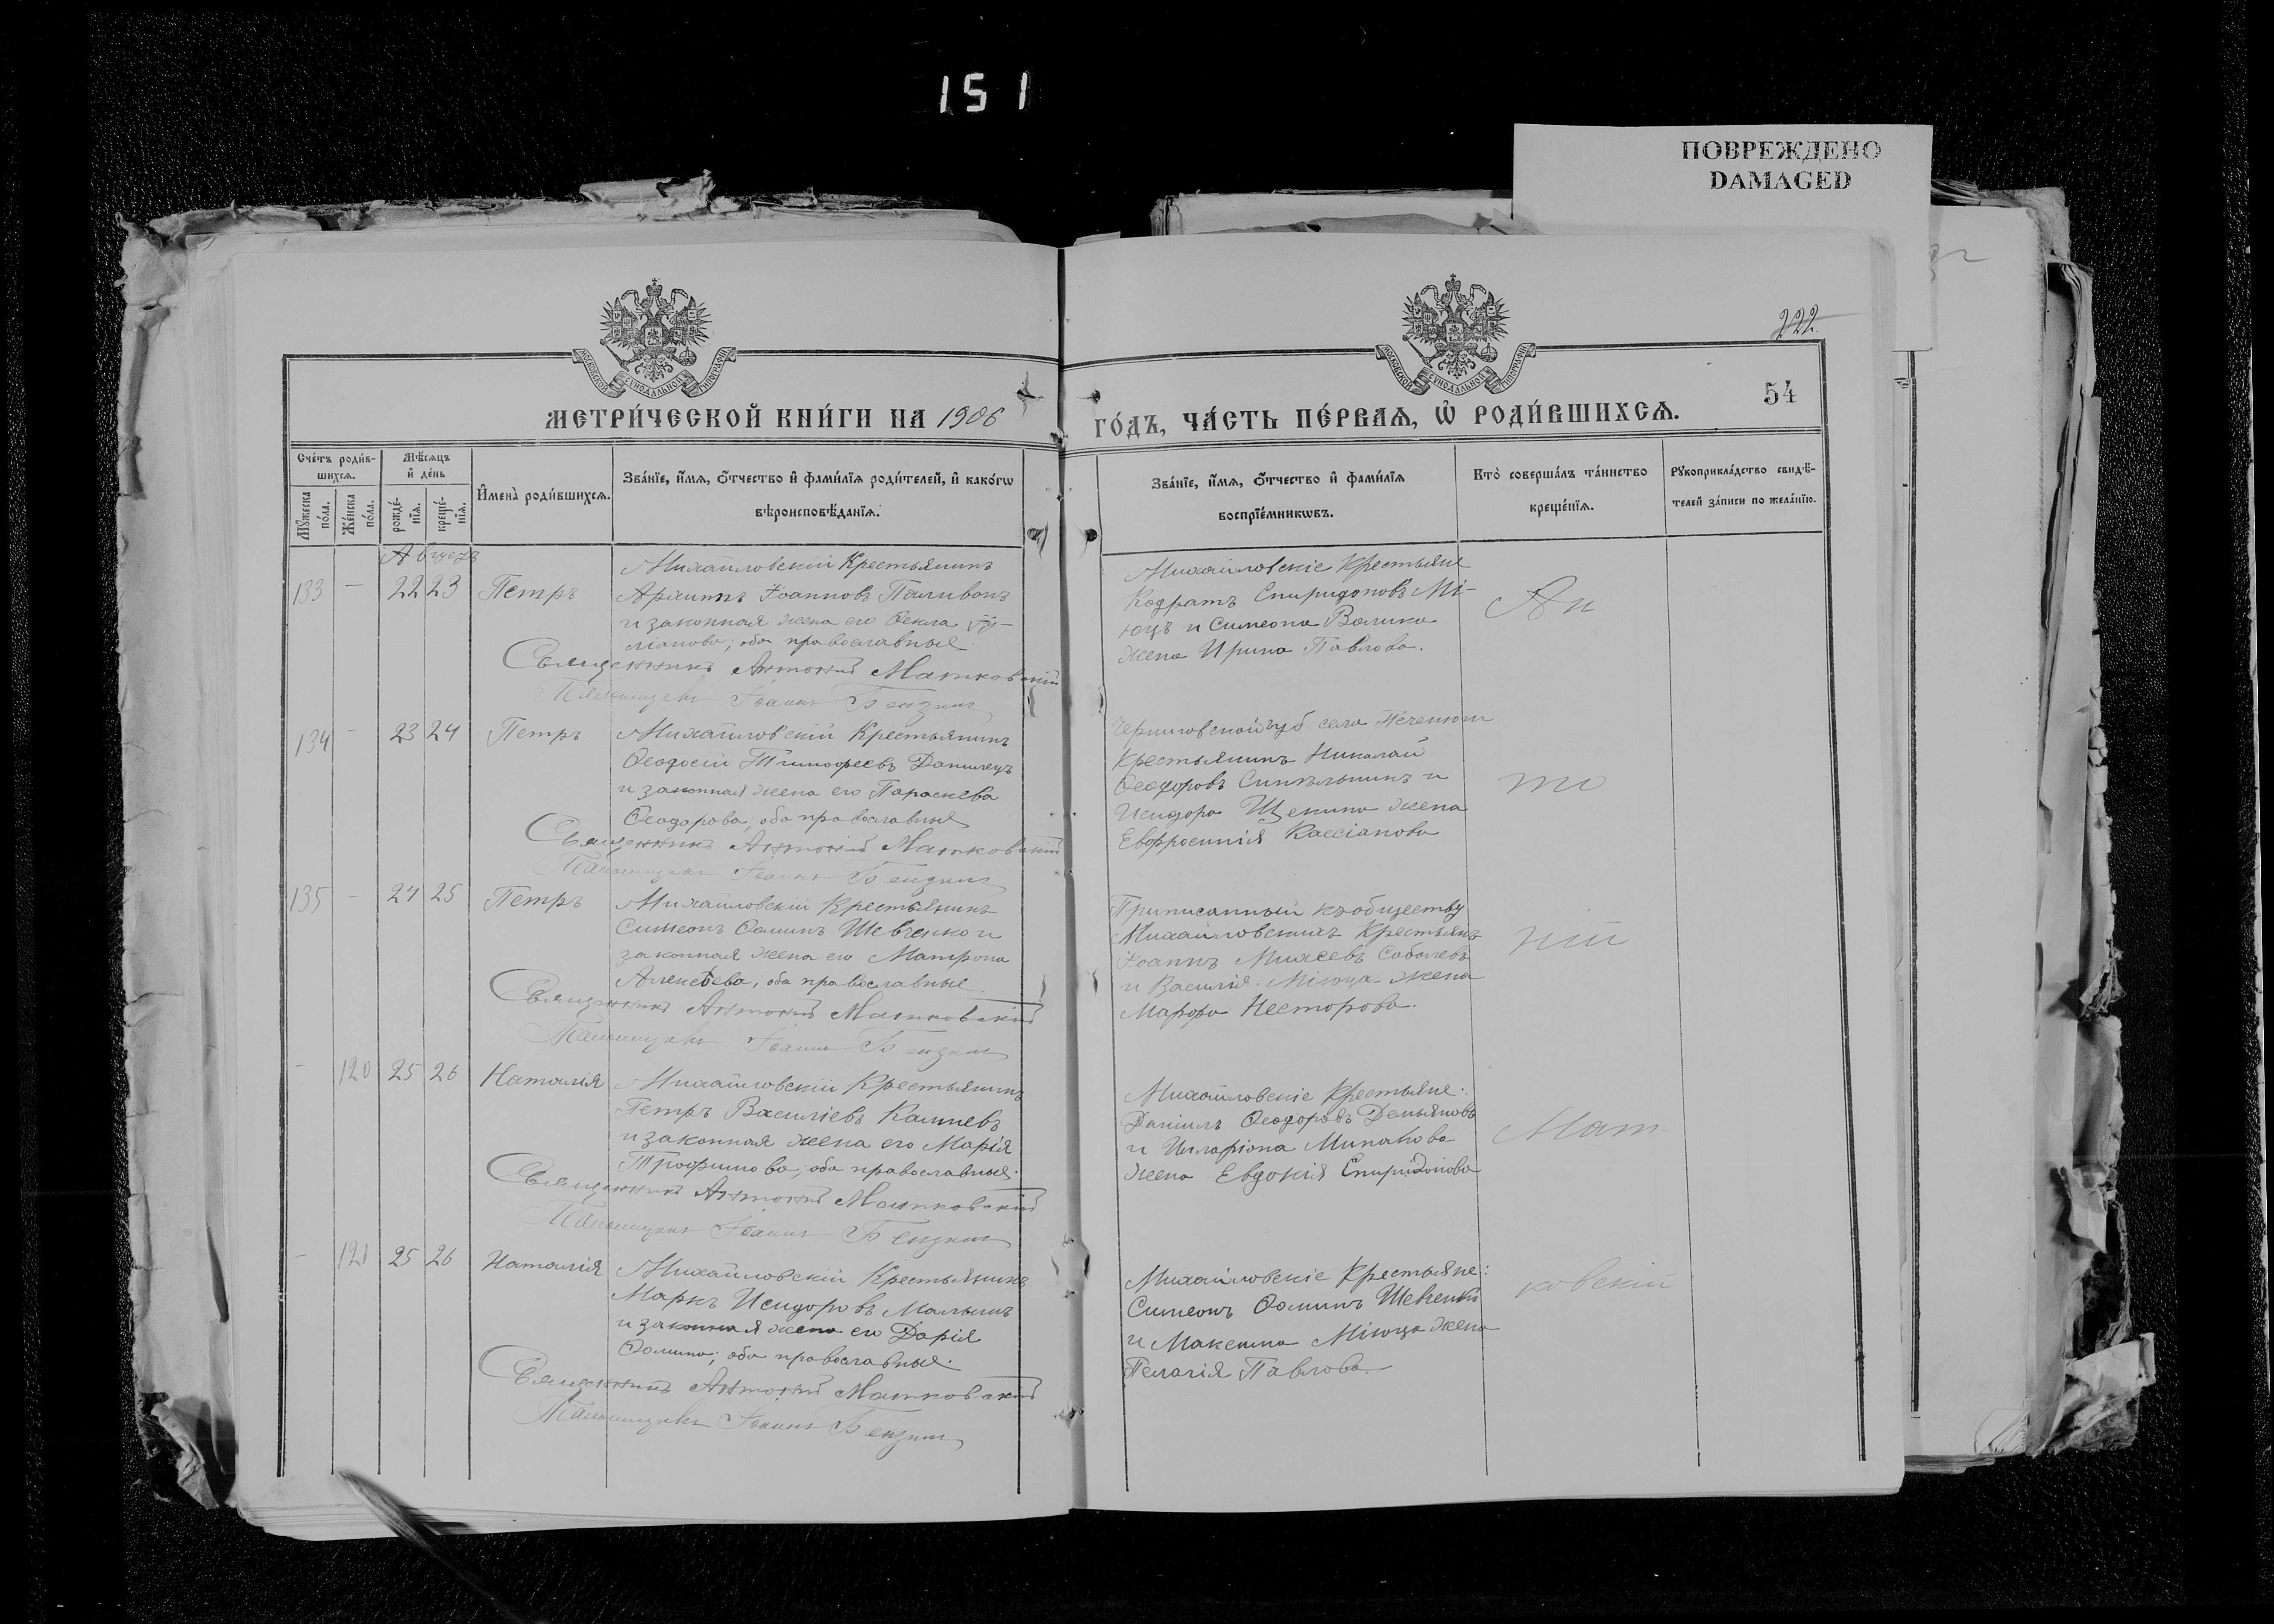 151
ПОВРЕЖДЕНО
DAMAGED
222.
54
МОСКОВСКОЙ СУНОДАЛЬНОЙ ТИПОГРАФІИ
МОСКОВСКОЙ СУНОДАЛЬНОЙ ТИПОГРАФІИ
МЕТРИ́ЧЕСКОЙ КНИ́ГИ НА 1906
ГО́ДЪ, ЧА́СТЬ ПЕ́РВАѦ, Ѽ РОДИ́ВШИХСѦ.
Сче́тъ роди́в-
шихсѧ.
Мѹ́жеска по́ла.
Же́нска по́ла.
Мѣ́сѧцъ
и҆ де́нь
рожде́-
нїѧ.
креще́-
нїѧ.
И҆мена̀ роди́вшихсѧ.
Зва́нїе, и҆́мѧ, ѻ҆́тчество и҆ фами́лїѧ роди́телей, и҆ како́гѡ
вѣроисповѣ́данїѧ.
Зва́нїе, и҆́мѧ, ѻ҆́тчество и҆ фами́лїѧ
воспрїе́мникѡвъ.
Кто̀ соверша́лъ та́инство
креще́нїѧ.
Рꙋкоприкла́дство свидѣ́-
телей за́писи по жела́нїю.
Августъ
133 — 22 23 Петръ
Михайловскій Крестьянинъ
Іоанновъ Паливонъ
и законная жена его Ѳекла
оба православные
Священникъ Антоній Матковскій
Псаломщикъ Іоаннъ
Михайловскіе Крестьяне
Кодратъ Спиридоновъ Мі-
юцъ и Симеона Валика
жена Ирина Павлова.
Ан
134 — 23 24 Петръ
Михайловскій Крестьянинъ
Ѳеодосій Тимофеевъ Данилецъ
и законная жена его Параскева
Ѳеодорова; оба православные
Священникъ Антоній Матковскій
Псаломщикъ Іоаннъ
Черниговской губ села
Крестьянинъ Николай
Ѳеодоровъ Синельникъ и
Исидора Щекина жена
Евфросинія Кассіанова
то
135 — 24 25 Петръ
Михайловскій Крестьянинъ
Симеонъ Ѳоминъ Шевченко и
законная жена его Матрона
Алексѣева; оба православные.
Священникъ Антоній Матковскій
Псаломщикъ Іоаннъ
Приписанный къ обществу
Михайловскихъ Крестьянъ
Іоаннъ Моисеевъ Соболевъ
и Василія Міюца жена
Марфа Несторова.
ній
— 120 25 26 Наталія
Михайловскій Крестьянинъ
Петръ Василіевъ
и законная жена его Марія
Трофимова; оба православные.
Священникъ Антоній Матковскій
Псаломщикъ Іоаннъ
Михайловскіе Крестьяне:
Даніилъ Ѳеодоровъ Демьяновъ
и Иларіона Минакова
жена Евдокія Спиридонова
Мат
— 121 25 26 Наталія
Михайловскій Крестьянинъ
Маркъ Исидоровъ Малышъ
и законная жена его Дарія
Ѳомина; оба православные.
Священникъ Антоній Матковскій
Псаломщикъ Іоаннъ
Михайловскіе Крестьяне:
Симеонъ Ѳоминъ Шевченко
и Максима Міюца жена
Пелагія Павлова.
ковскій